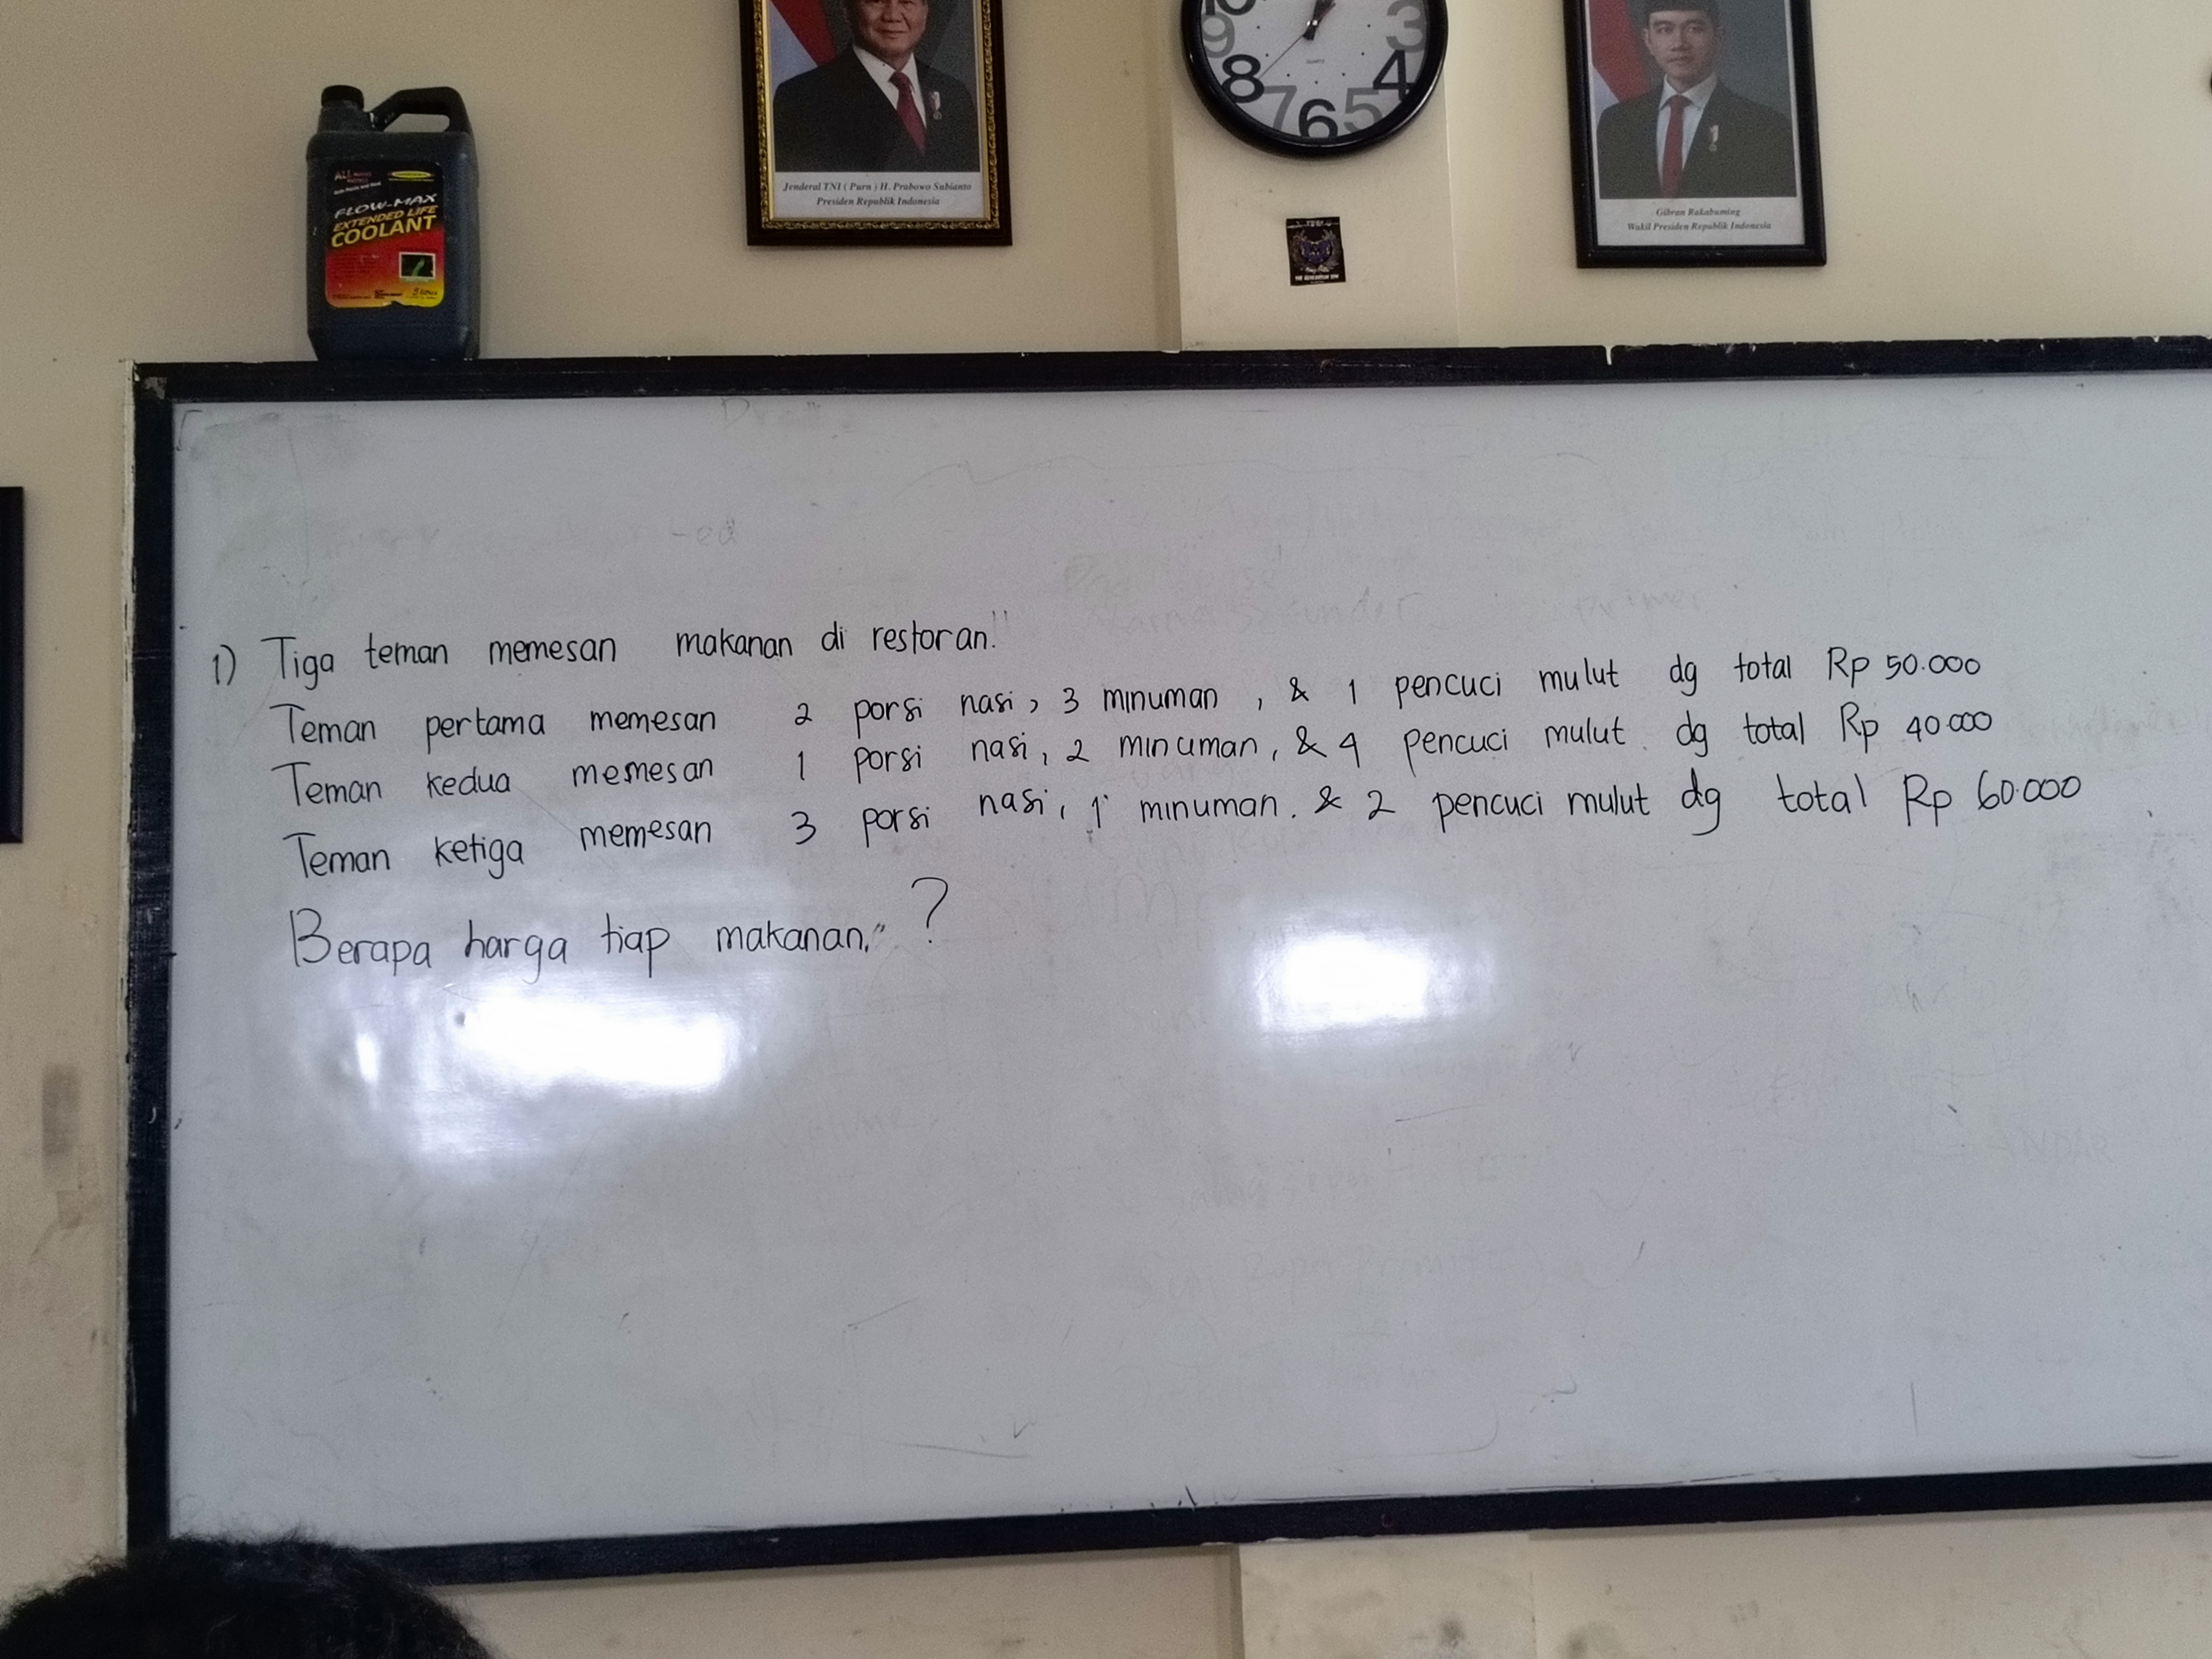 Jenderal TNI ( Purn ) H. Prabowo Subianto
Presiden Republik Indonesia
10 3
9
8 4
7 6 5
QUARTZ
Gibran Rakabuming
Wakil Presiden Republik Indonesia
ALL
FLOW-MAX
EXTENDED LIFE
COOLANT
1) Tiga teman memesan makanan di restoran."
Teman pertama memesan 2 porsi nasi, 3 minuman, & 1 pencuci mulut dg total Rp 50.000
Teman kedua memesan 1 porsi nasi, 2 minuman, & 4 pencuci mulut dg total Rp 40.000
Teman ketiga memesan 3 porsi nasi, 1 minuman. & 2 pencuci mulut dg total Rp 60.000
Berapa harga tiap makanan." ?